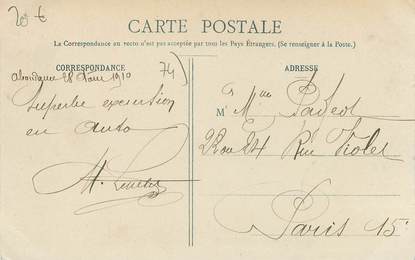 20 €
CARTE POSTALE
La Correspondance au recto n'est pas acceptée par tous les Pays Étrangers. (Se renseigner à la Poste.)
CORRESPONDANCE
74
Abondance 28 Aout 1910
Superbe excursion
en auto
ADRESSE
M
Mme
Rue Violet
Paris 15e